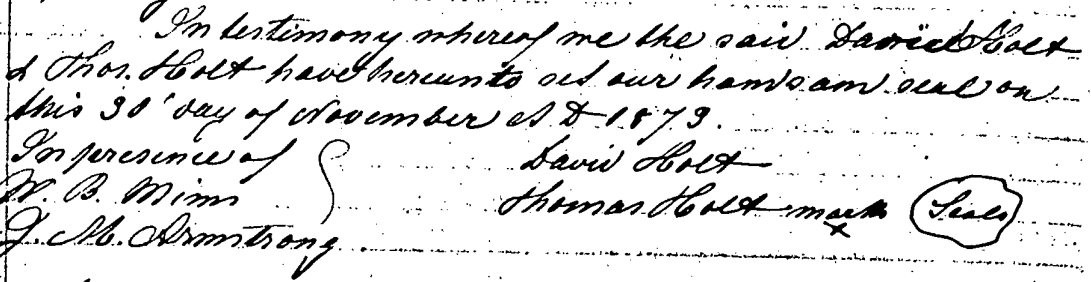 In testimony whereof we the said David Holt
& Thos. Holt have hereunto set our hands and seal on
this 30' day of November A D 1873.
In presence of
W. B. Mims
J. M. Armstrong
David Holt
Thomas Holt mark
x
Seals